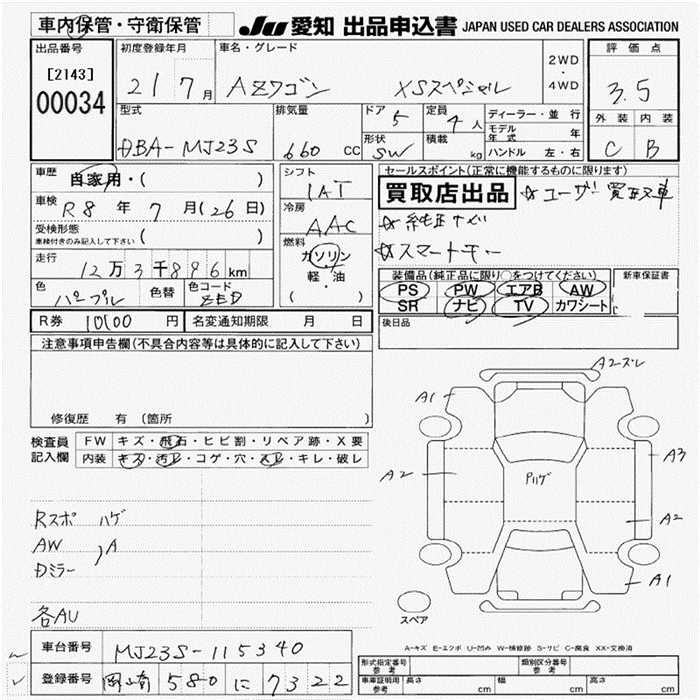 車内保管・守衛保管
JU 愛知 出品申込書 JAPAN USED CAR DEALERS ASSOCIATION
出品番号
[2143]
00034
初度登録年月
21 7月
車名・グレード
AZワゴン XSスペシャル
2WD
・
4WD
評価点
3.5
外装 内装
C B
型式
DBA-MJ23S
排気量
660 CC
ドア 5
形状 SW
定員 4人
積載 kg
ディーラー・並行
モデル年式 年
ハンドル 左・右
車歴
自家用・( )
車検 R8年 7月(26日)
受検形態
車検付きのみ記入して下さい ( )
走行
12万3千896km
色 パープル 色替 色コード ZED
シフト
IAT
冷房
AAC
燃料
ガソリン
軽・油
( )
セールスポイント(正常に機能するものに限り)
買取店出品 ☆ユーザー買取車
☆純正ナビ
☆スマートキー
装備品(純正品に限り○をつけてください) 新車保証書
PS PW エアB AW
SR ナビ TV カワシート
後日品
R券 10100 円 名変通知期限 月 日
注意事項申告欄(不具合内容等は具体的に記入して下さい)
修復歴 有 (箇所
検査員 FW キズ・飛石・ヒビ割・リペア跡・X要
記入欄 内装 キズ・汚レ・コゲ・穴・スレ・キレ・破レ
Rスポ ハゲ
AW
Dミラー ) A
各AU
A2ズレ
A1
A2
A3
Pハゲ
A2
A1
スペア
A-キズ E-エクボ U-凹み W-補修跡 S-サビ C-腐食 XX-交換済
車台番号 MJ23S-115340
登録番号 岡崎 580 に 7322
形式指定番号 参考 類別区分番号 参考
車庫証明用 参考 長さ cm 幅 cm 高さ cm